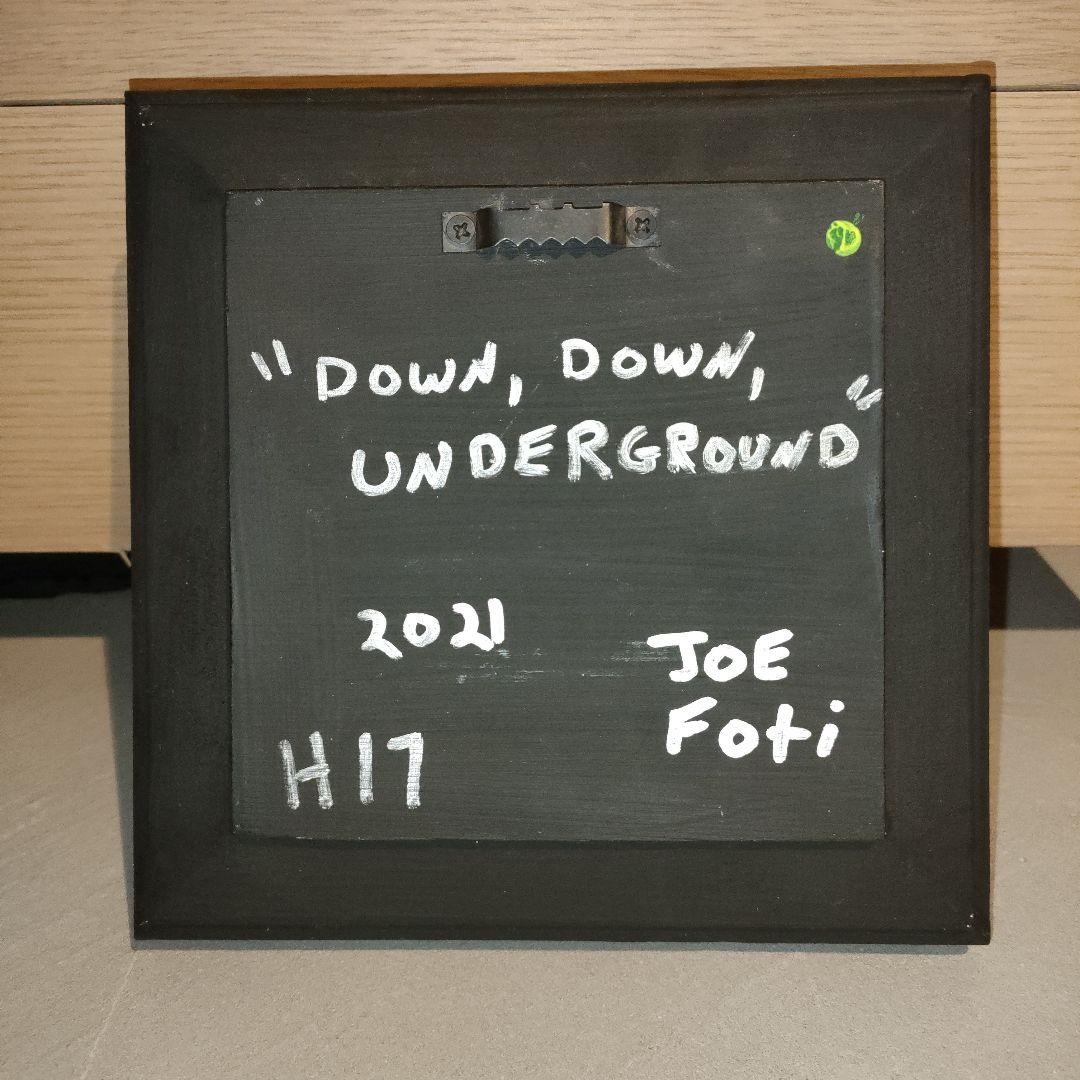 "DOWN, DOWN,
UNDERGROUND"
2021
JOE
Foti
H17